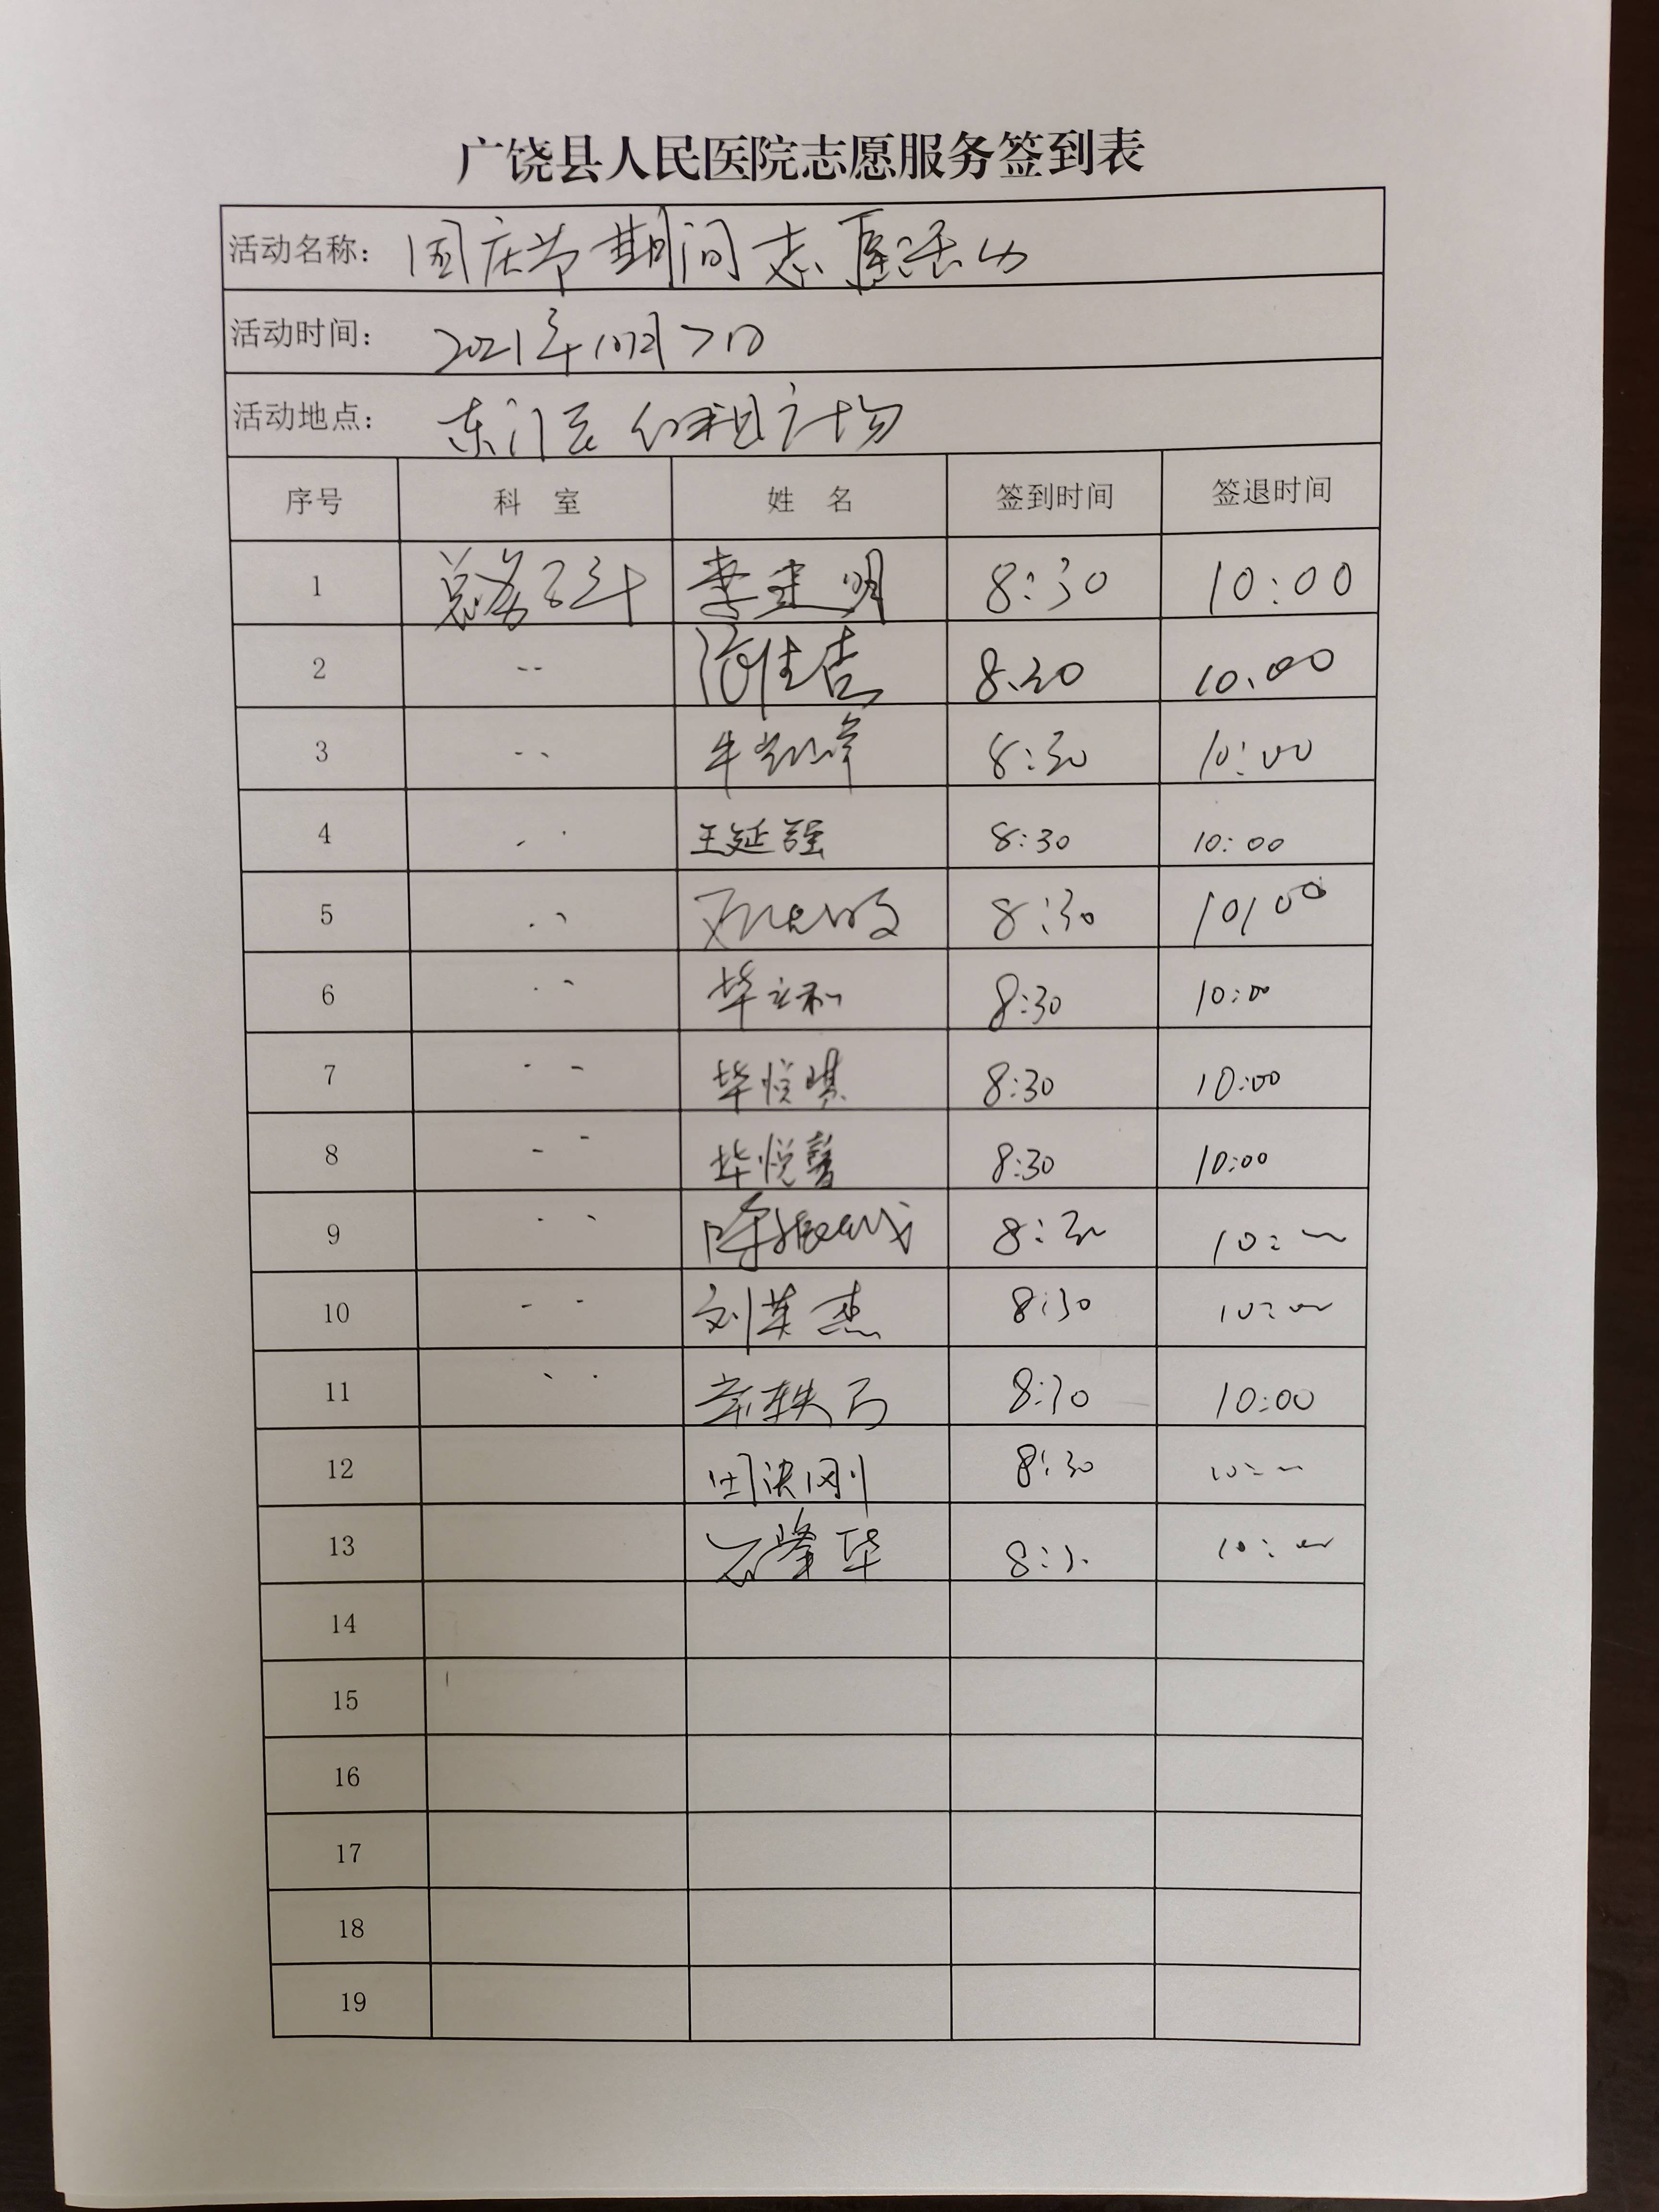 广饶县人民医院志愿服务签到表
活动名称： 国庆节期间志愿活动
活动时间： 2021年10月7日
活动地点： 东门
序号 科 室 姓 名 签到时间 签退时间
1 总务科 李建明 8:30 10:00
2 -- 8.30 10.00
3 -- 牛 峰 8:30 10:00
4 -- 王延强 8:30 10:00
5 -- 8:30 10:00
6 -- 毕立和 8:30 10:00
7 -- 毕悦琪 8:30 10:00
8 -- 毕悦馨 8:30 10:00
9 -- 8:30 10:00
10 -- 刘英杰 8:30 10:00
11 -- 8:30 10:00
12 田洪刚 8:30 10:00
13 8:30 10:00
14
15
16
17
18
19